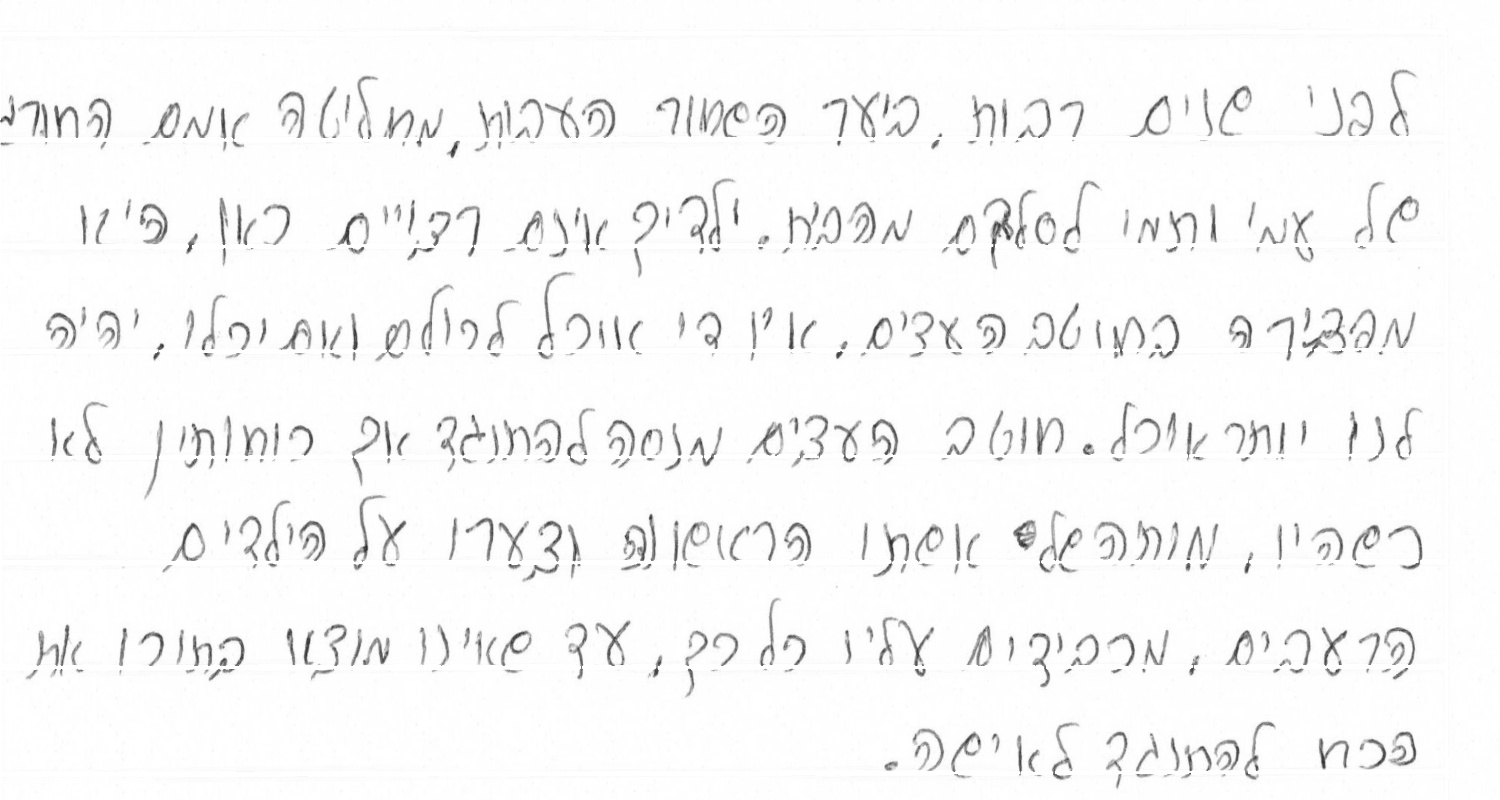 לפני שנים רבות, ביער השחור העבות, מחליטה אמם החורג
של עמי ותמי לסלקם מהבית. ילדיך אינם רצויים כאן, היא
מפצירה בחוטב העצים, אין די אוכל לכולם ואם יכלו, יהיה
לנו יותר אוכל. חוטב העצים מנסה להתנגד אך כוחותיו לא
כשהיו, מותה של אשתו הראשונה וצערו על הילדים
הרעבים, מכבידים עליו כל כך, עד שאינו מוצא בתוכו את
הכח להתנגד לאישה.